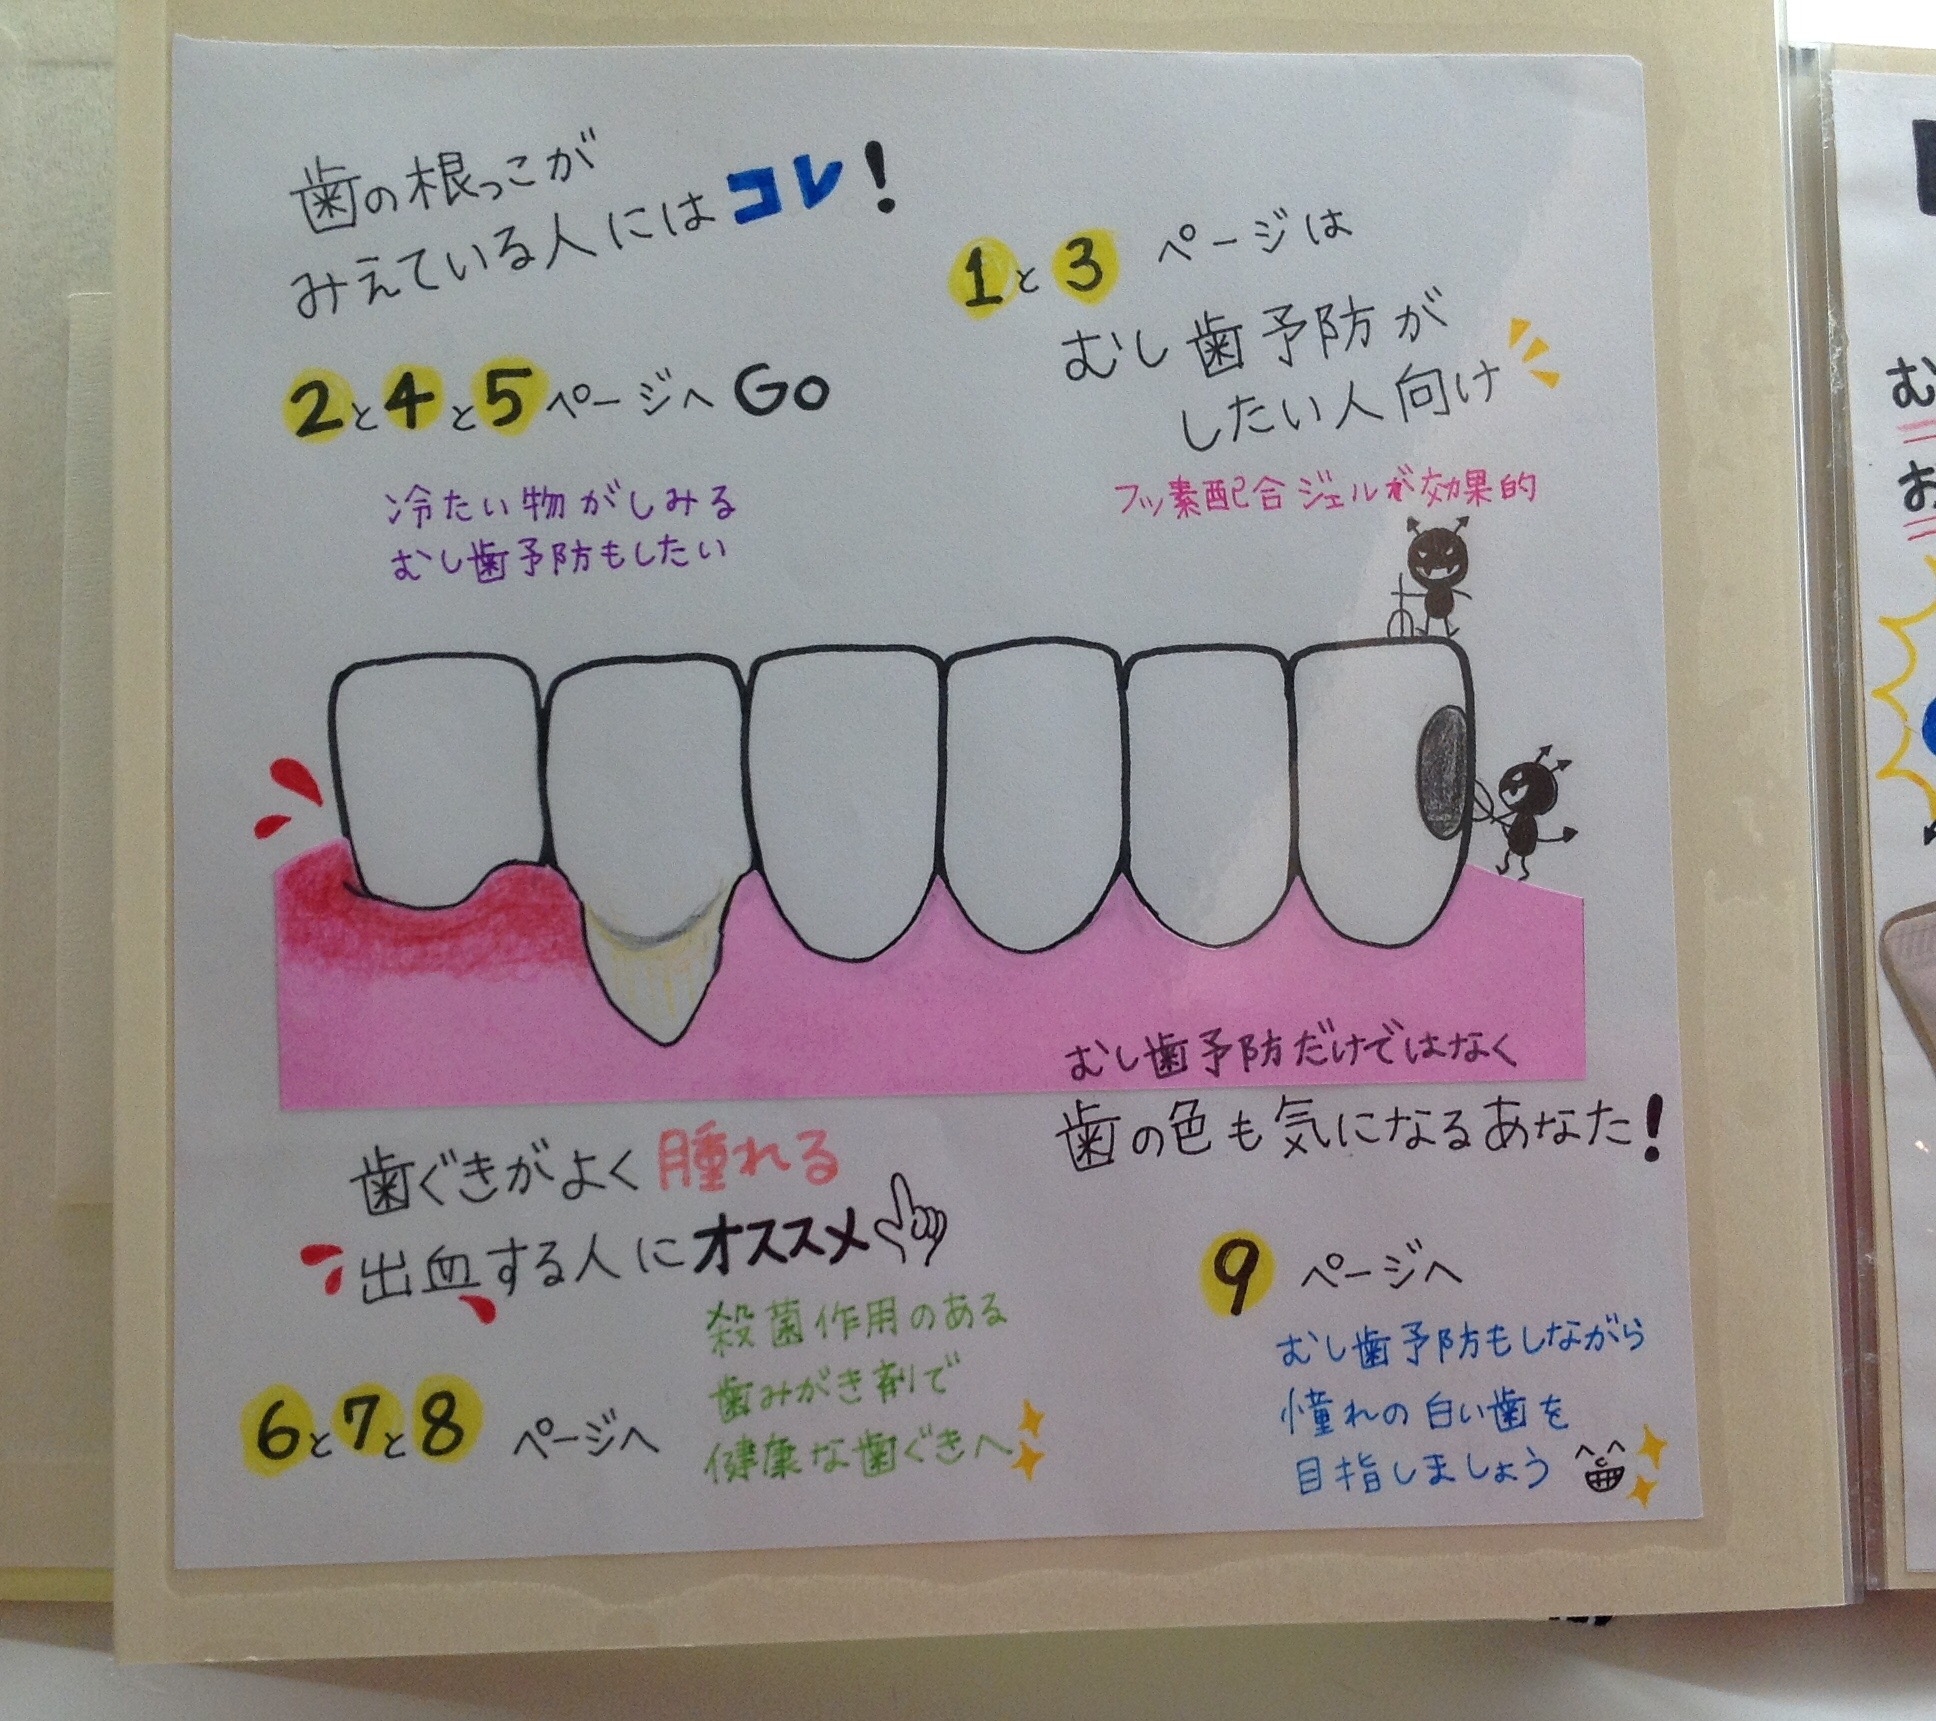 歯の根っこが
みえている人にはコレ!
2と4と5ページへGo
冷たい物がしみる
むし歯予防もしたい
1と3 ページは
むし歯予防が
したい人向け
フッ素配合ジェルが効果的
歯ぐきがよく腫れる
出血する人にオススメ
6と7と8 ページへ
殺菌作用のある
歯みがき剤で
健康な歯ぐきへ
むし歯予防だけではなく
歯の色も気になるあなた!
9 ページへ
むし歯予防もしながら
憧れの白い歯を
目指しましょう
む
お